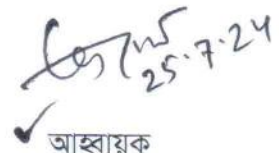 25.7.24
আহবায়ক